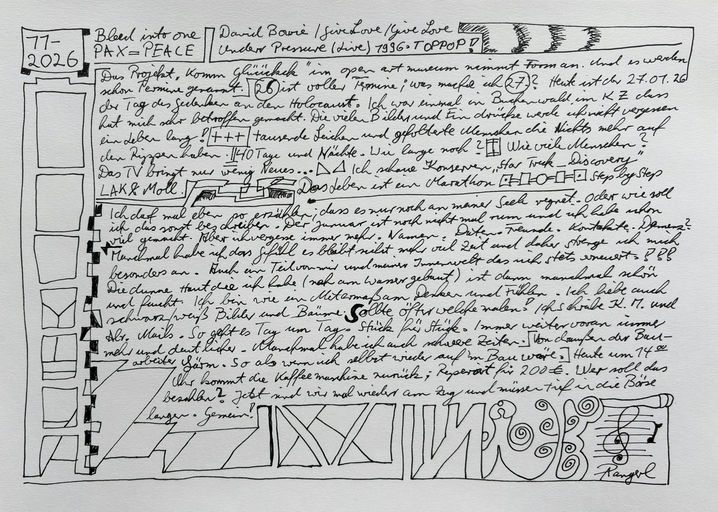 11-
2026
Bleed into one
PAX = PEACE
David Bowie / Give Love / Give Love
Under Pressure (Live) 1996 · TOPPOP!
Das Projekt, Komm Glüück" im open art museum nimmt Form an. Und es werden
schon Termine genannt. 26 ist voller Termine; was mache ich 27? Heute ist der 27.01.26
der Tag des Gedenken an den Holocaust. Ich war einmal in Buchenwald im KZ dass
hat mich sehr betroffen gemacht. Die vielen Bilder und Eindrücke werde ich nicht vergessen
ein Leben lang! +++ tausende Leichen und gefolterte Menschen die Nichts mehr auf
den Rippen haben. 40 Tage und Nächte. Wie lange noch? Wie viele Menschen?
Das TV bringt nur wenig Neues... Ich schaue Konserven „Star Trek - Discovery"
LAK & Moll. Das Leben ist ein Marathon Step by Step
Ich darf mal eben so erzählen; dass es nur noch an meiner Seele regnet. Oder wie soll
ich das sonst beschreiben. Der Januar ist noch nicht mal rum und ich habe schon
viel gemacht. Aber ich vergesse immer mehr. Namen. Daten. Freunde. Kontakte. Demenz?
Manchmal habe ich das Gefühl es bleibt nicht mehr viel Zeit und daher strenge ich mich
besonders an. Auch ein Teil von mir und meiner Innenwelt das sich stets erneuert. ???
Die dünne Haut die ich habe (nah am Wasser gebaut) ist dann manchmal schön
und feucht. Ich bin wie ein Mitarmaß am Denken und Fühlen. Ich liebe auch
schwarz/weiß Bilder und Bäume. Sollte öfter welche malen! Ich schreibe K.M. und
Hr. Mails. So geht es Tag um Tag. Stück für Stück. Immer weiter voran immer
mehr und deutlicher. Manchmal habe ich auch schwere Zeiten. Von draußen der Bau-
arbeiter Lärm. So als wenn ich selbst wieder auf'm Bau wäre. Heute um 14 00
Uhr kommt die Kaffeemaschine zurück; Reperatur für 200 €. Wer soll das
bezahlen? Jetzt sind wir mal wieder am Zug und müssen tief in die Börse
langen. Gemein!
Kangerl